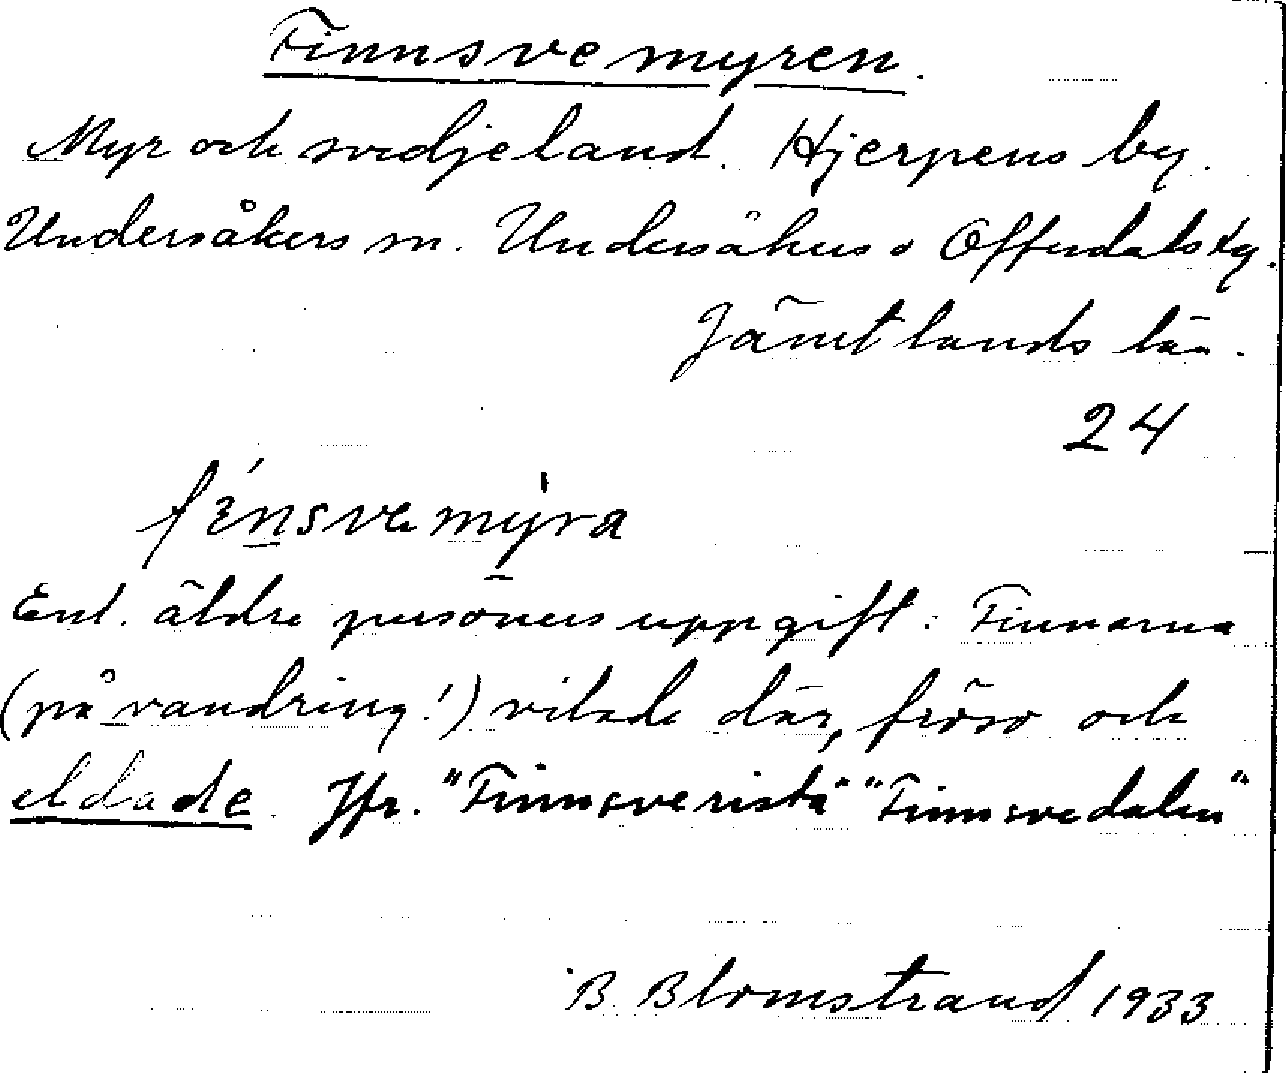 Finnsvemyren.
Myr och svedjeland. Hjerpens by.
Undersåkers sn. Undersåkers o Offerdals tg.
Jämtlands län.
24
fénsvemyra
Enl. äldre personers uppgift: Finnarna
(på vandring!) vilade där, fröso och
eldade. Jfr. "Finnsveristå" "Finnsvedalen"
B. Blomstrand 1933